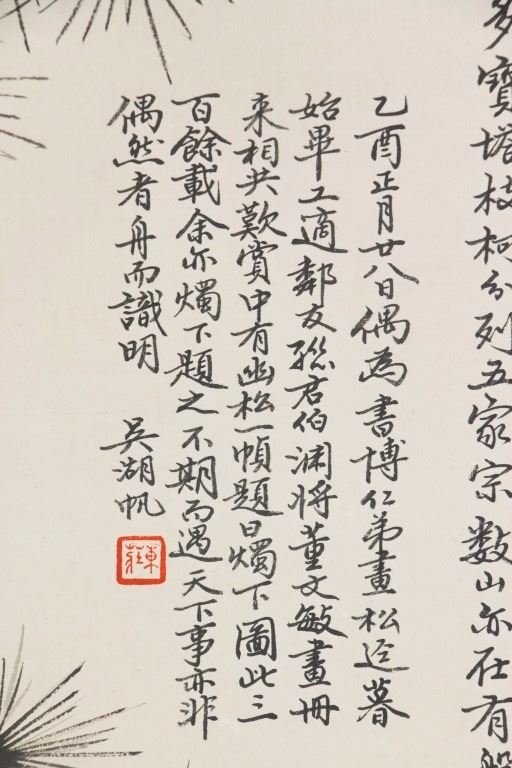 多寶塔枝柯分列五家宗數山亦在有
乙酉正月廿八日偶為書博仁弟畫松迳暮
始畢工適鄰友孫君伯渊將董文敏畫冊
来相共歎賞中有幽松一幀題曰燭下圖此三
百餘載余亦燭下題之不期而遇天下事亦非
偶然者舟而識明
吳湖帆